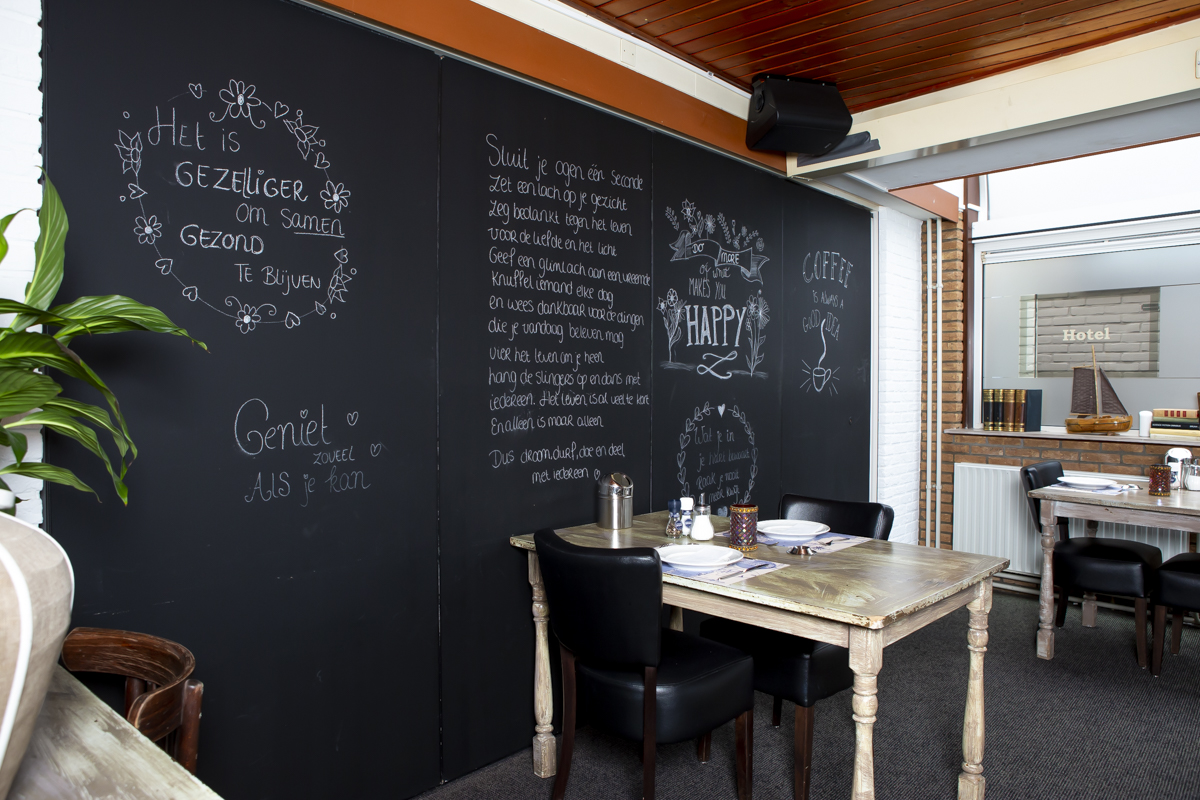 Het is
GEZELLIGER
om SAMEN
GEZOND
TE BLIJVEN
Geniet
ZOVEEL
ALS je kan
Sluit je ogen één seconde
Zet een lach op je gezicht
Zeg bedankt tegen het leven
voor de liefde en het licht
Geef een glimlach aan een vreemde
Knuffel iemand elke dag
en wees dankbaar voor de dingen
die je vandaag beleven mag
Vier het leven om je heen
hang de slingers op en dans met
iedereen. Het leven is al veel te kort
En alleen is maar alleen
Dus droom, durf, doe en deel
met iedereen
DO MORE
of what
MAKES YOU
HAPPY
Wat je in
je hart bewaart
raak je nooit
meer kwijt
COFFEE
IS ALWAYS A
GOOD IDEA
Hotel